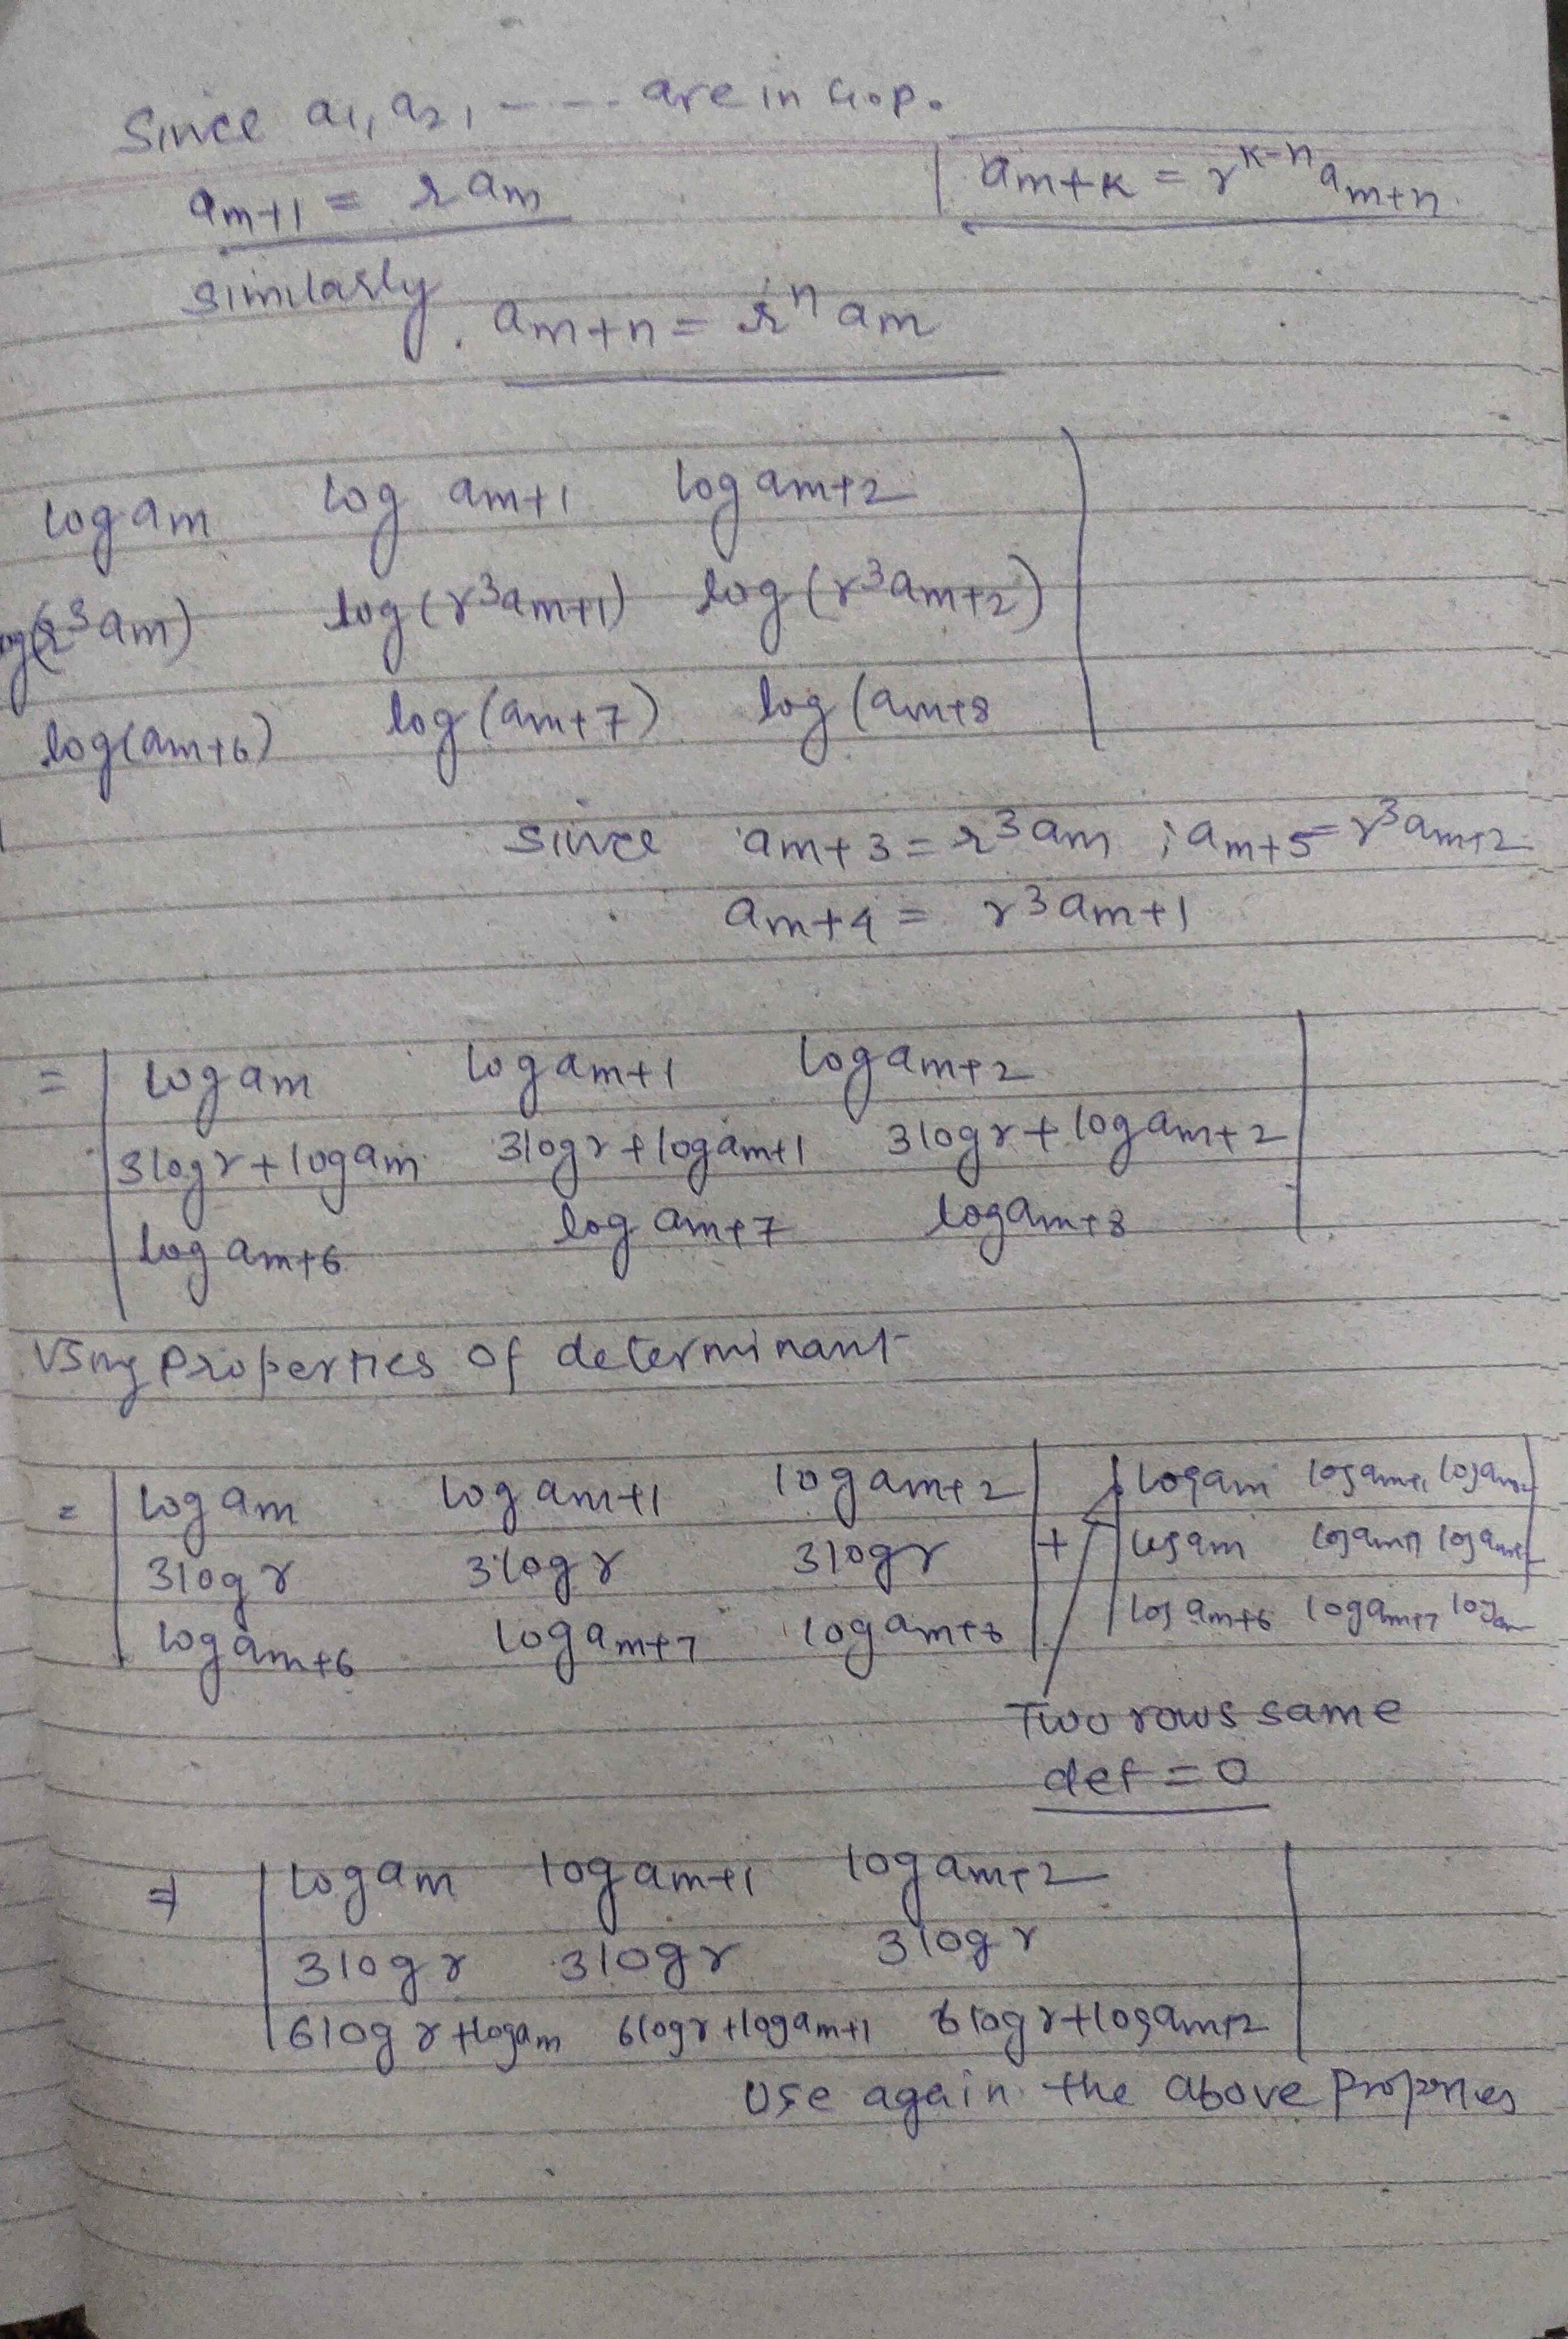 Since a1, a2, ---- are in G.P.
am+1 = r am | am+k = r^k-n am+n.
Similarly
am+n = r^n am
log am log am+1 log am+2
log(r^3 am) log(r^3 am+1) log(r^3 am+2)
log(am+6) log(am+7) log(am+8
Since am+3 = r^3 am ; am+5 = r^3 am+2
am+4 = r^3 am+1
= | log am log am+1 log am+2 |
3logr + log am 3logr + log am+1 3logr + log am+2
log am+6 log am+7 log am+8
Using Properties of determinant
= | log am log am+1 log am+2 | + | log am log am+1 log am+2 |
3logr 3logr 3logr log am log am+1 log am+2
log am+6 log am+7 log am+8 log am+6 log am+7 log am
Two rows same
det = 0
⇒ | log am log am+1 log am+2 |
3logr 3logr 3logr
6logr + log am 6logr + log am+1 6logr + log am+2
Use again the above Properties